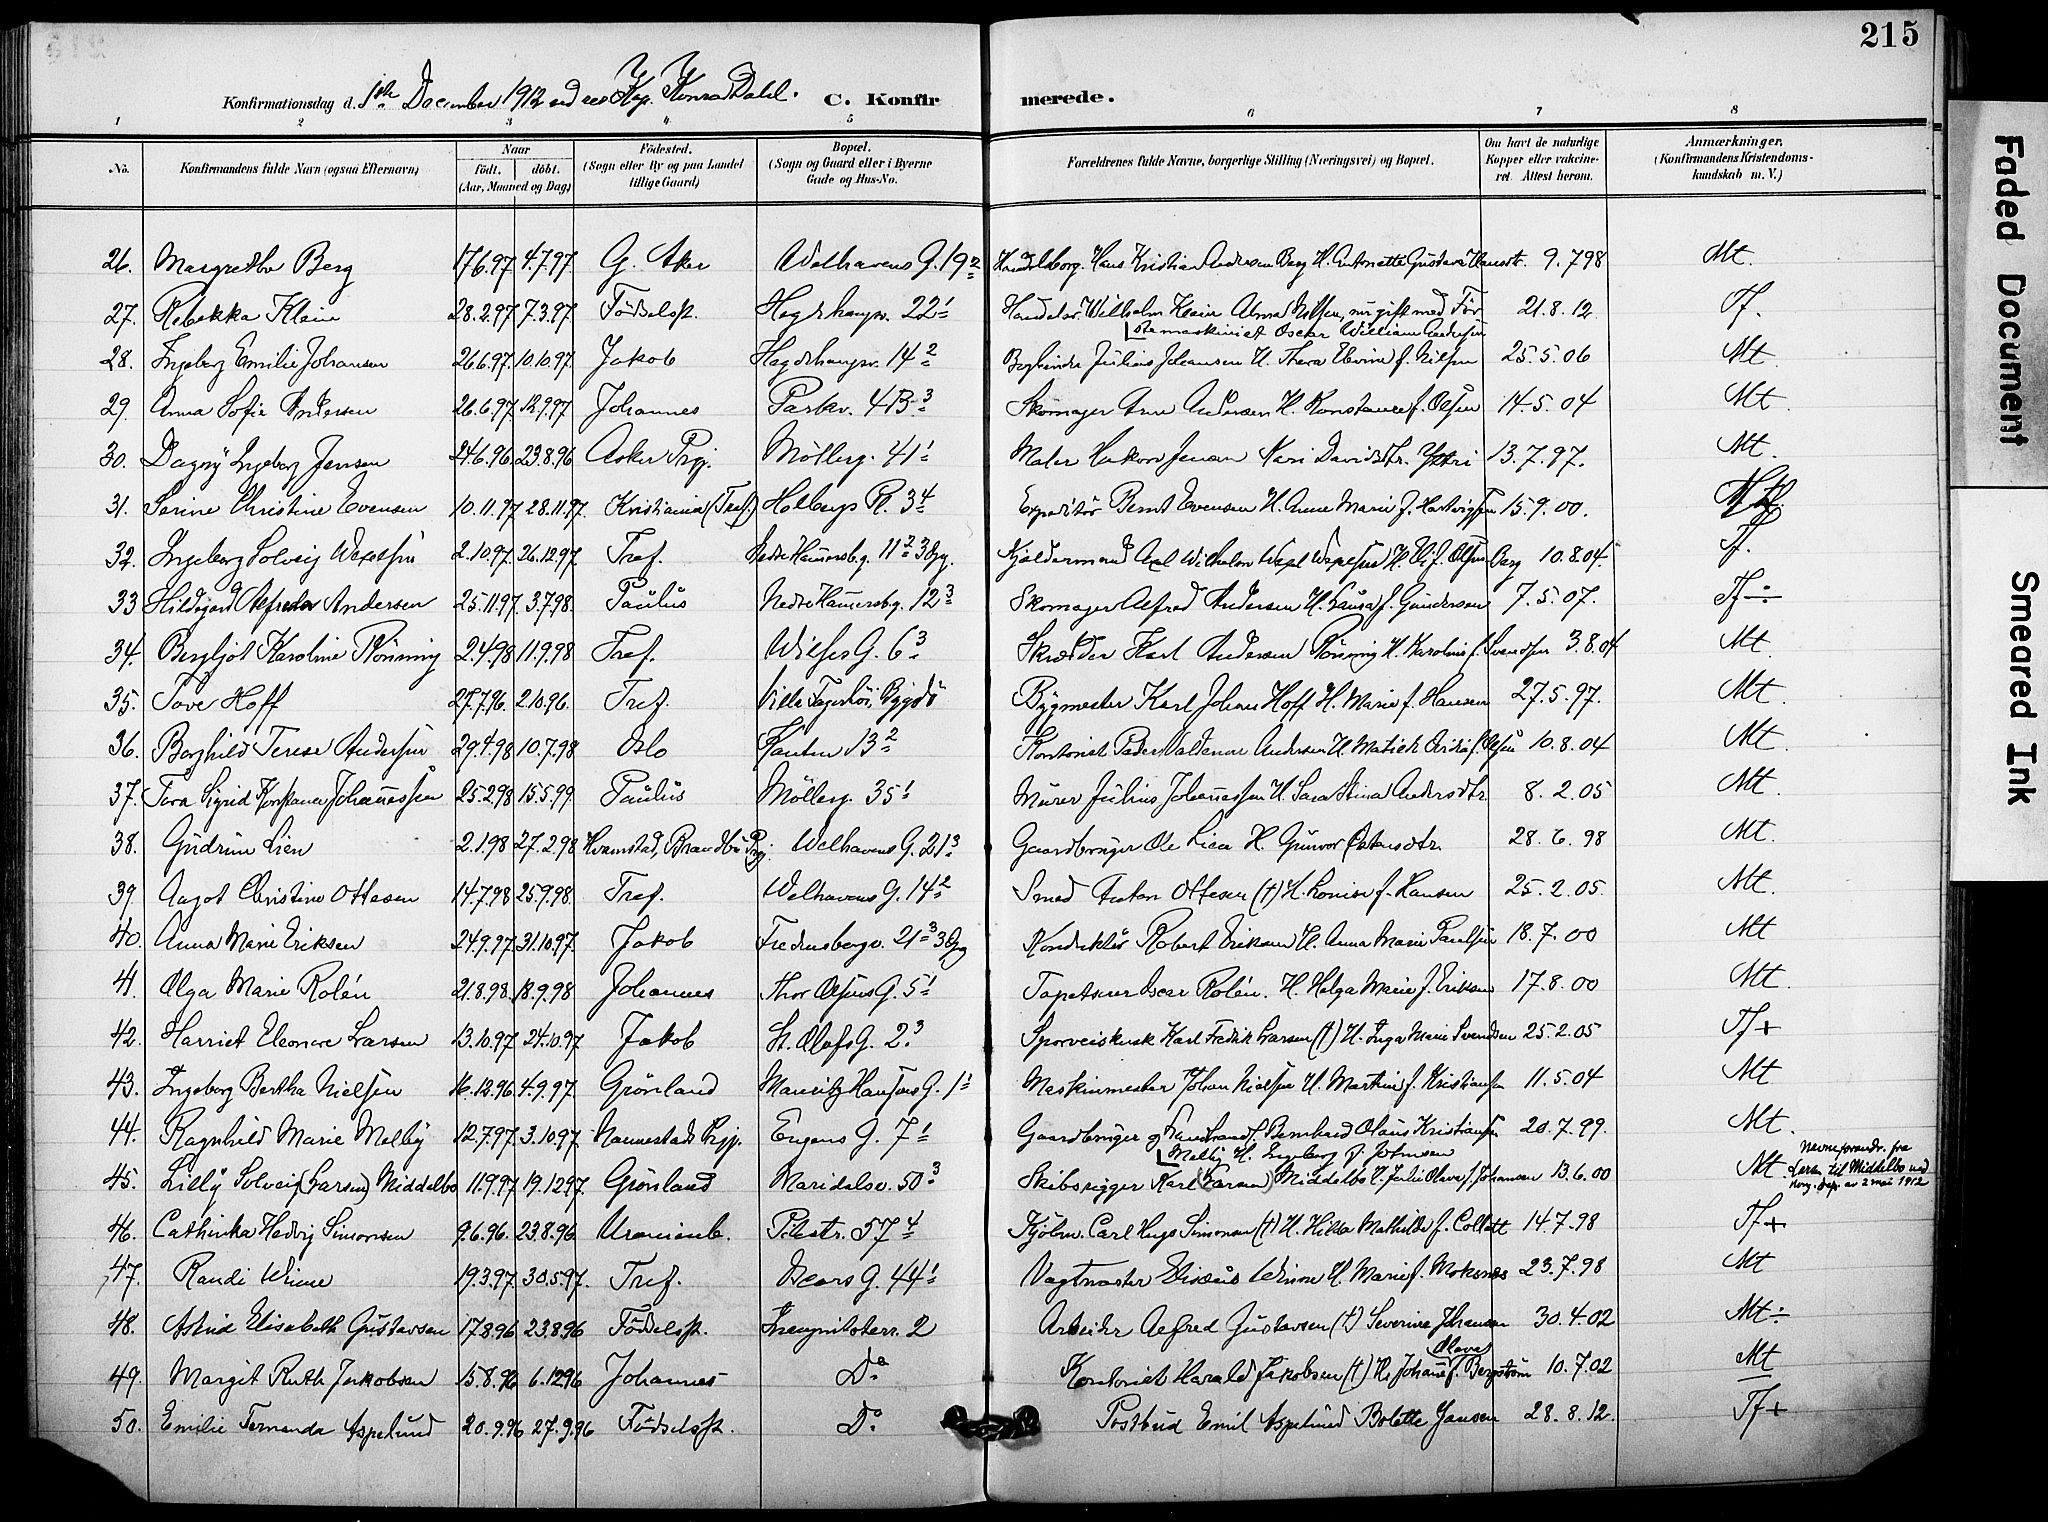 215
Konfirmationsdag d. 1ste December 1912 ved res Kap. Konrad Dahl. C. Konfirmerede.
1 2 3 4 5 6 7 8
No. Konfirmandens fulde Navn (ogsaa Efternavn) Naar født. døbt. (Aar, Maaned og Dag) Fødested. (Sogn eller By og paa Landet tillige Gaard) Bopæl. (Sogn og Gaard eller i Byerne Gade og Hus-No. Forældrenes fulde Navne, borgerlige Stilling (Næringsvei) og Bopæl. Om havt de naturlige Kopper eller vaccineret. Attest herom. Anmærkninger. (Konfirmandens Kristendomskundskab m. V.)
26. Margrethe Berg 17.6.97 4.7.97 G. Aker Welhavens G. 19² Handelsborg. Hans Kristian Andresen Berg H. Antonette Gustava Hansdtr. 9.7.98 Mt.
27. Rebekka Klein 28.2.97 7.3.97 Födselsst. Hegdehaugsv. 22¹ Handelsr. Wilhelm Klein Alma Nilsen, nu gift med För
stemaskinist Oscar William Andersen 21.8.12. Tf.
28. Ingeborg Emilie Johansen 26.6.97 10.10.97 Jakob Hegdehaugsv. 14² Bogbinder Julius Johansen H. Thora Elvine f. Nilsen 25.5.06 Mt.
29. Anna Sofie Andersen 26.6.97 12.9.97 Johannes Parkv. 4B³ Skomager Arne Andersen H. Konstance f. Olsen 14.5.04 Mt.
30. Dagny Ingeborg Jensen 24.6.96 23.8.96 Asker Prgj. Möllerg. 41¹ Maler Hakon Jensen Kari Davidsdtr. Yttri 13.7.97. Mt.
31. Sarine Christine Evensen 10.11.97 28.11.97. Kristiania (Tref.) Holbergs Pl. 3⁴ Expeditör Bernt Evensen H. Anne Marie f. Hartvigsen 15.9.00.
32. Ingeborg Solveig Wexelsen 2.10.97 26.12.97 Tref. Nedre Hammersbg. 11² 3 Opg. Kjeldermand Axel Wilhelm H. f. Olsen Berg 10.8.04. Tf.
33 Hildegard Alfreda Andersen 25.11.97. 3.7.98. Paulus Nedre Hammersbg. 12³ Skomager Alfred Andersen H. Lausa f. Gundersen 7.5.07. Tf ÷
34. Bergljot Karoline Rönning 2.4.98 11.9.98 Tref. Wilses G. 6³ Skrædder Karl Andersen Rönning H. Karoline f. Svendsen 3.8.04 Mt.
35. Tove Hoff 27.7.96. 2.10.96. Tref. Villa Fagerhöi, Bygdö Bygmester Karl Johan Hoff H. Marie f. Hansen 27.5.97. Mt
36. Borghild Terese Andersen 29.4.98 10.7.98 Oslo 13² Kontorist Peder Valdemar Andersen H. f. Olsen 10.8.04 Mt.
37. Tora Sigrid Konstance Johannessen 25.2.98 15.5.99 Paulus Möllerg. 35¹ Murer Julius Johannessen H. Sara Stina Andersdtr. 8.2.05 Mt.
38. Gudrun Lien 2.1.98 27.2.98 Hvamstad, Brandbu Prgj. Welhavens G. 21³ Gaardbruger Ole Lien H. Gunvor Østensdtr. 28.6.98 Mt.
39 Aagot Christine Ottesen 14.7.98 25.9.98. Tref. Welhavens G. 14² Smed Anton Ottesen (†) H. Lovise f. Hansen 25.2.05. Mt.
40. Anna Marie Eriksen 24.9.97 31.10.97. Jakob Fredensborgv. 21³ 3 Opg Konduktör Robert Eriksen H. Anna Marie Paulsen 18.7.00 Mt
41. Olga Marie Rolén 21.8.98. 18.9.98 Johannes Thor Olsens G. 5¹ Tapetserer Oscar Rolén. H. Helga Marie f. Eriksen 17.8.00 Mt.
42. Harriet Eleonore Larsen 13.10.97 24.10.97 Jakob St. Olafs G. 2³ Sporveiskusk Karl Fredrik Larsen (†) H. Inga Marie Svendsen 25.2.05 Tf +
43. Ingeborg Bertha Nielsen 16.12.96 4.9.97. Grönland Mauritz Hansens G. 1¹ Maskinmester Johan Nielsen H. Martine f. Kristiansen 11.5.04 Mt
44. Ragnhild Marie Melby 12.7.97 3.10.97 Nannestads Prgj. Eugens G. 7¹ Gaardbruger og Bernhard Olaus Kristiansen
Melby H. Ingeborg f. Johnsen 20.7.99. Mt.
45. Lilly Solveig (Larsen) Middelbo 11.9.97 19.12.97. Grönland Maridalsv. 50³ Skibsrigger Karl (Larsen) Middelbo H. Julie Olava f. Johansen 13.6.00 Mt. Navneforandr. fra
Larsen til Middelbo ved
kong. dep. av 2 mai 1912
46. Cathinka Hedvig Simonsen 9.6.96. 23.8.96 Uranienb. Pilestr. 57⁴ Kjölm. Carl Hugo Simonsen (†) H. Hilda Mathilde f. Collett 14.7.98 Tf +
47. Randi Winne 19.3.97 30.5.97. Tref. Oscars G. 44¹ Vagtmester Elisæus Winne H. Marie f. Moksnes 23.7.98 Mt
48. Astrid Elisabeth Gustavsen 17.8.96 23.8.96 Födselsst. Incognitoterr. 2 Arbeider Alfred Gustavsen (†) Severine Johansen 30.4.02 Mt ÷
49. Margit Ruth Jakobsen 15.8.96 6.12.96 Johannes Do Kontorist Harald Jakobsen (†) H. Johanne Olava f. Bergström 10.7.02 Mt
50. Emilie Fernanda Aspelund 20.9.96 27.9.96 Födselsst. Do Postbud Emil Aspelund Bolette Jansen 28.8.12. Tf +
Faded Document
Smeared Ink